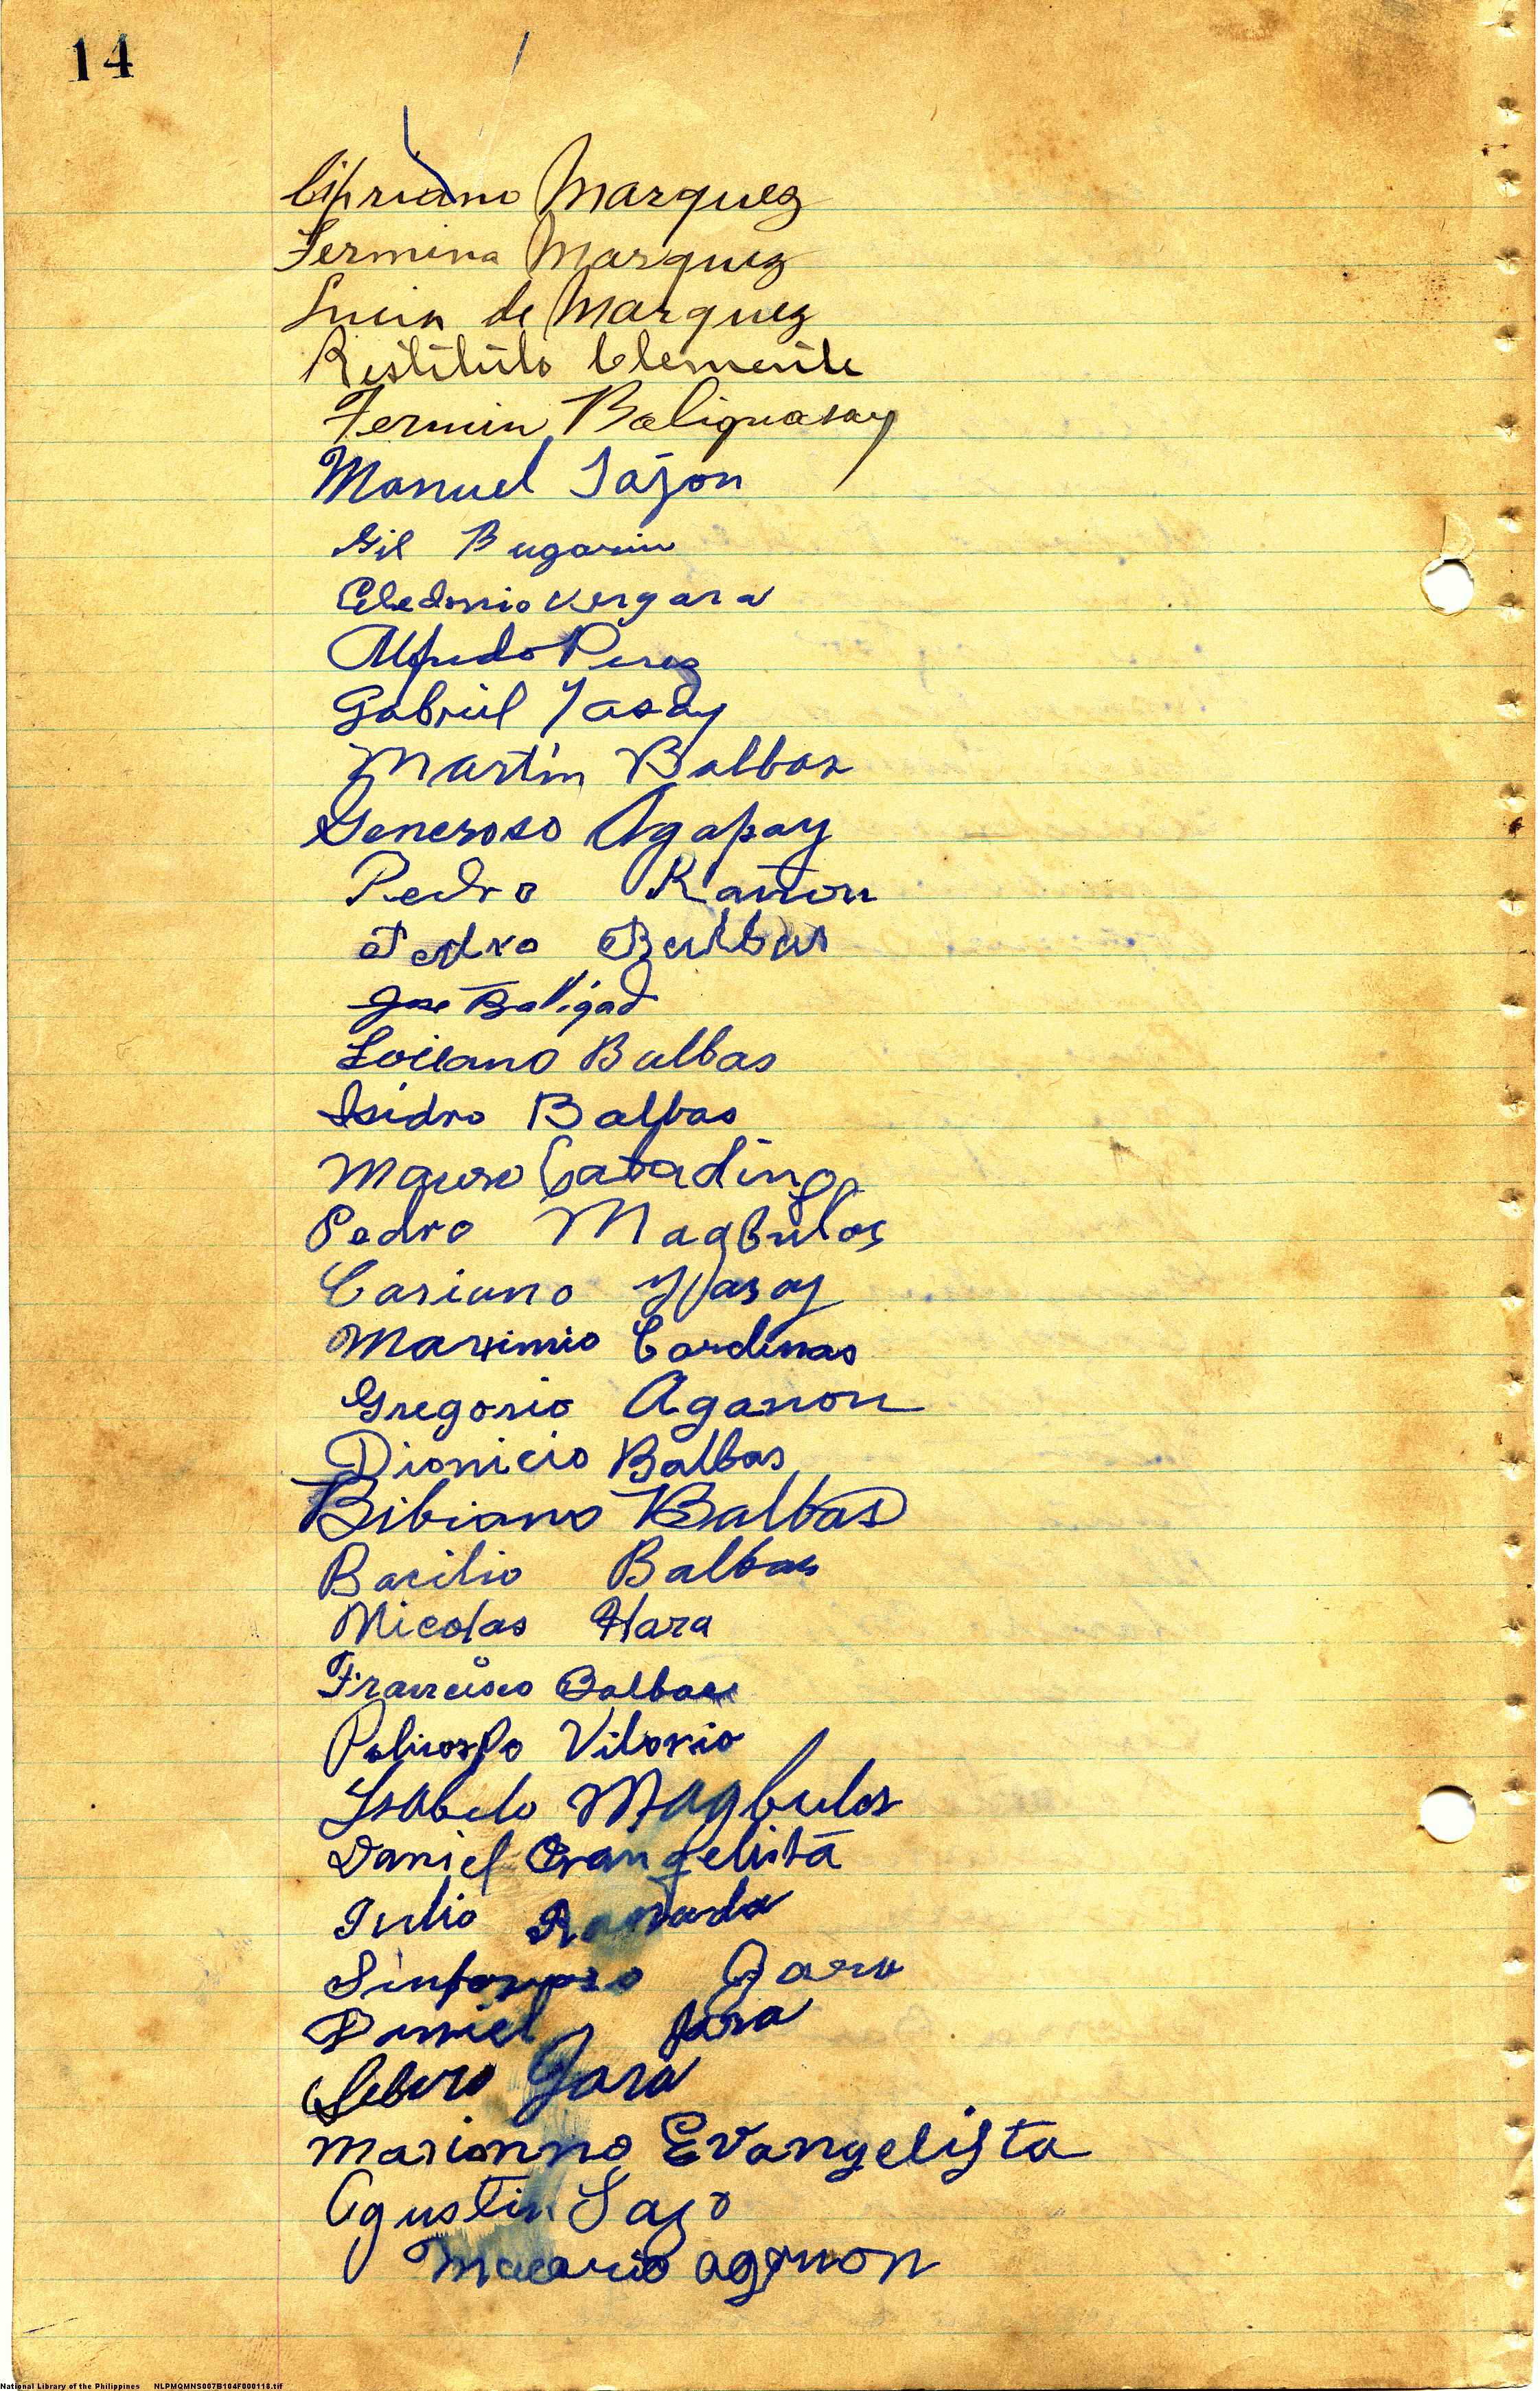 14
Cipriano Marquez
Fermina Marquez
Lucia de Marquez
Restituto Clemente
Fermin Baliguasay
Manuel Sazon
Gil Bugarin
Celedonio Vergara
Alfredo Perez
Gabriel Yasay
Martin Balbas
Generoso Agapay
Pedro Rañon
Pedro Balbas
Jose Baligad
Loilano Balbas
Isidro Balbas
Mauro Catading
Pedro Magbulos
Cariano Yasay
Maximio Cardinas
Gregorio Aganon
Dionicio Balbas
Bibiano Balbas
Bacilio Balbas
Nicolas Hara
Francisco Balbas
Policarpo Vilorio
Isabelo Magbulos
Daniel Evangelista
Julio
Sinforoso Jara
Daniel Jara
Sebero Jara
Marionno Evangelista
Agustin Sazo
Macario aganon
National Library of the Philippines NLPMQMNS007B104F000118.tif